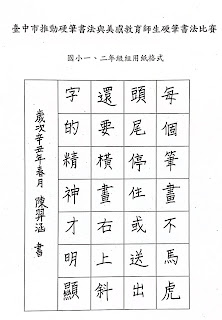 臺中市推動硬筆書法與美感教育師生硬筆書法比賽
國小一、二年級組用紙格式
每個筆畫不馬虎
頭尾停住送出
還要橫畫右上斜
字的精神才明顯
歲次辛丑年春月 陳羿涵 書